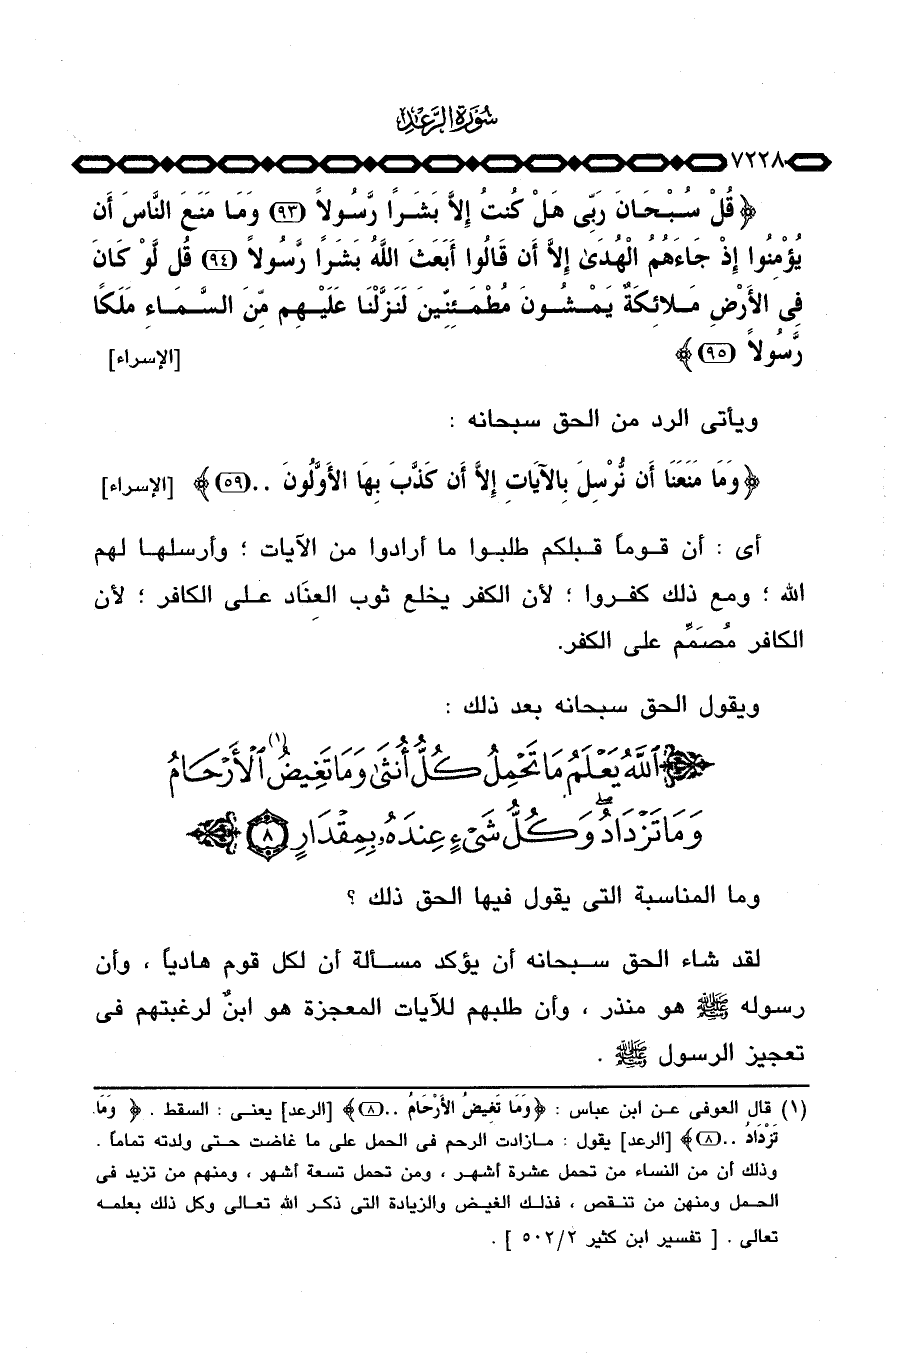 سُورَةُ الرَّعْدِ
٧٢٢٨
﴿قُلْ سُبْحَانَ رَبِّى هَلْ كُنتُ إِلاَّ بَشَرًا رَّسُولاً (٩٣) وَمَا مَنَعَ النَّاسَ أَن
يُؤْمِنُوا إِذْ جَاءَهُمُ الْهُدَىٰ إِلاَّ أَن قَالُوا أَبَعَثَ اللَّهُ بَشَرًا رَّسُولاً (٩٤) قُل لَّوْ كَانَ
فِى الأَرْضِ مَلائِكَةٌ يَمْشُونَ مُطْمَئِنِّينَ لَنَزَّلْنَا عَلَيْهِم مِّنَ السَّمَاءِ مَلَكًا
رَّسُولاً (٩٥)﴾ [الإسراء]
ويأتى الرد من الحق سبحانه :
﴿وَمَا مَنَعَنَا أَن نُّرْسِلَ بِالآيَاتِ إِلاَّ أَن كَذَّبَ بِهَا الأَوَّلُونَ ..(٥٩)﴾ [الإسراء]
أى : أن قوماً قبلكم طلبوا ما أرادوا من الآيات ؛ وأرسلها لهم
الله ؛ ومع ذلك كفروا ؛ لأن الكفر يخلع ثوب العِنَاد على الكافر ؛ لأن
الكافر مُصمِّم على الكفر.
ويقول الحق سبحانه بعد ذلك :
﴿ٱللَّهُ يَعْلَمُ مَا تَحْمِلُ كُلُّ أُنثَىٰ وَمَا تَغِيضُ(١) ٱلْأَرْحَامُ
وَمَا تَزْدَادُۖ وَكُلُّ شَىْءٍ عِندَهُۥ بِمِقْدَارٍ ٨﴾
وما المناسبة التى يقول فيها الحق ذلك ؟
لقد شاء الحق سبحانه أن يؤكد مسألة أن لكل قوم هادياً ، وأن
رسوله ﷺ هو منذر ، وأن طلبهم للآيات المعجزة هو ابنٌ لرغبتهم فى
تعجيز الرسول ﷺ .
(١) قال العوفى عن ابن عباس : ﴿وَمَا تَغِيضُ الأَرْحَامُ ..(٨)﴾ [الرعد] يعنى : السقط . ﴿ وَمَا
تَزْدَادُ ..(٨)﴾ [الرعد] يقول : مازادت الرحم فى الحمل على ما غاضت حتى ولدته تماماً .
وذلك أن من النساء من تحمل عشرة أشهر ، ومن تحمل تسعة أشهر ، ومنهم من تزيد فى
الحمل ومنهن من تنقص ، فذلك الغيض والزيادة التى ذكر الله تعالى وكل ذلك بعلمه
تعالى . [ تفسير ابن كثير ٥٠٢/٢ ] .